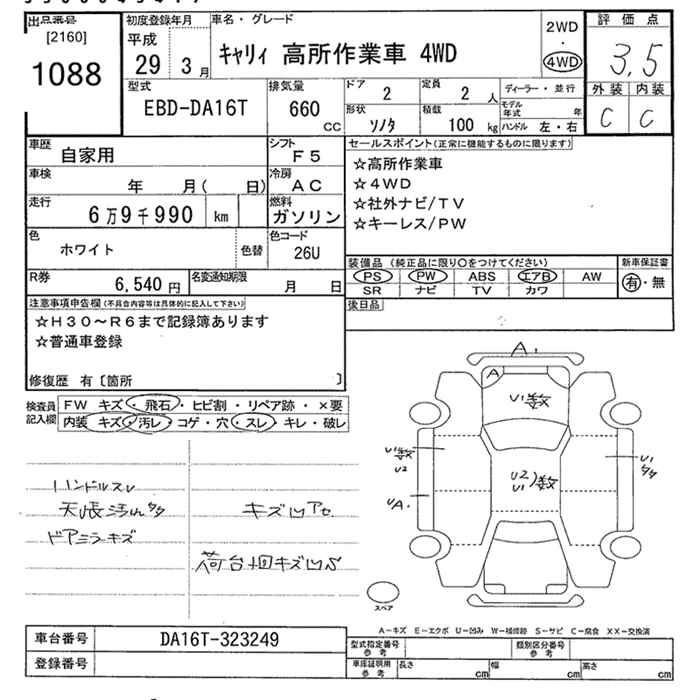 出品番号
[2160]
1088
初度登録年月
平成
29 3月
車名・グレード
キャリィ 高所作業車 4WD
2WD
・
4WD
評価点
3.5
外装 内装
C C
型式
EBD-DA16T
排気量
660
CC
ドア
2
定員
2 人
形状
ソノタ
積載
100 kg
ディーラー・並行
モデル年式 年
ハンドル 左・右
車歴
自家用
シフト
F5
車検
年 月( 日)
冷房
AC
走行
6万9千990 km
燃料
ガソリン
色
ホワイト
色替
色コード
26U
R券
6,540円
名変通知期限
月 日
セールスポイント(正常に機能するものに限ります)
☆高所作業車
☆4WD
☆社外ナビ/TV
☆キーレス/PW
装備品(純正品に限り○をつけてください)
PS PW ABS エアB AW
SR ナビ TV カワ
新車保証書
有・無
後日品
注意事項申告欄(不具合内容等は具体的に記入して下さい)
☆H30〜R6まで記録簿あります
☆普通車登録
修復歴 有〔箇所 〕
検査員記入欄
FW キズ・飛石・ヒビ割・リペア跡・×要
内装 キズ・汚レ・コゲ・穴・スレ・キレ・破レ
ハンドルスレ
ドアミラキズ
キズ凹アセ
A.
A
U1数
U1数
U2
U2
U1 数
UA.
U1
スペア
A−キズ E−エクボ U−凹み W−補修跡 S−サビ C−腐食 XX−交換済
車台番号
DA16T-323249
登録番号
型式指定番号
参考
類別区分番号
参考
車庫証明用
参考
長さ cm
幅 cm
高さ cm